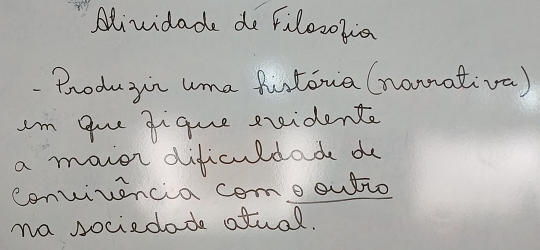 Atividade de Filosofia
- Produzir uma história (narrativa)
em que fique evidente
a maior dificuldade de
convivência com o outro
na sociedade atual.